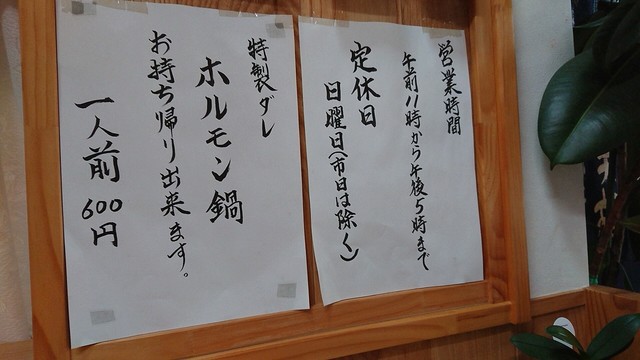 営業時間
午前11時から午後5時まで
定休日
日曜日(市日は除く)
特製ダレ
ホルモン鍋
お持ち帰り出来ます。
一人前600円